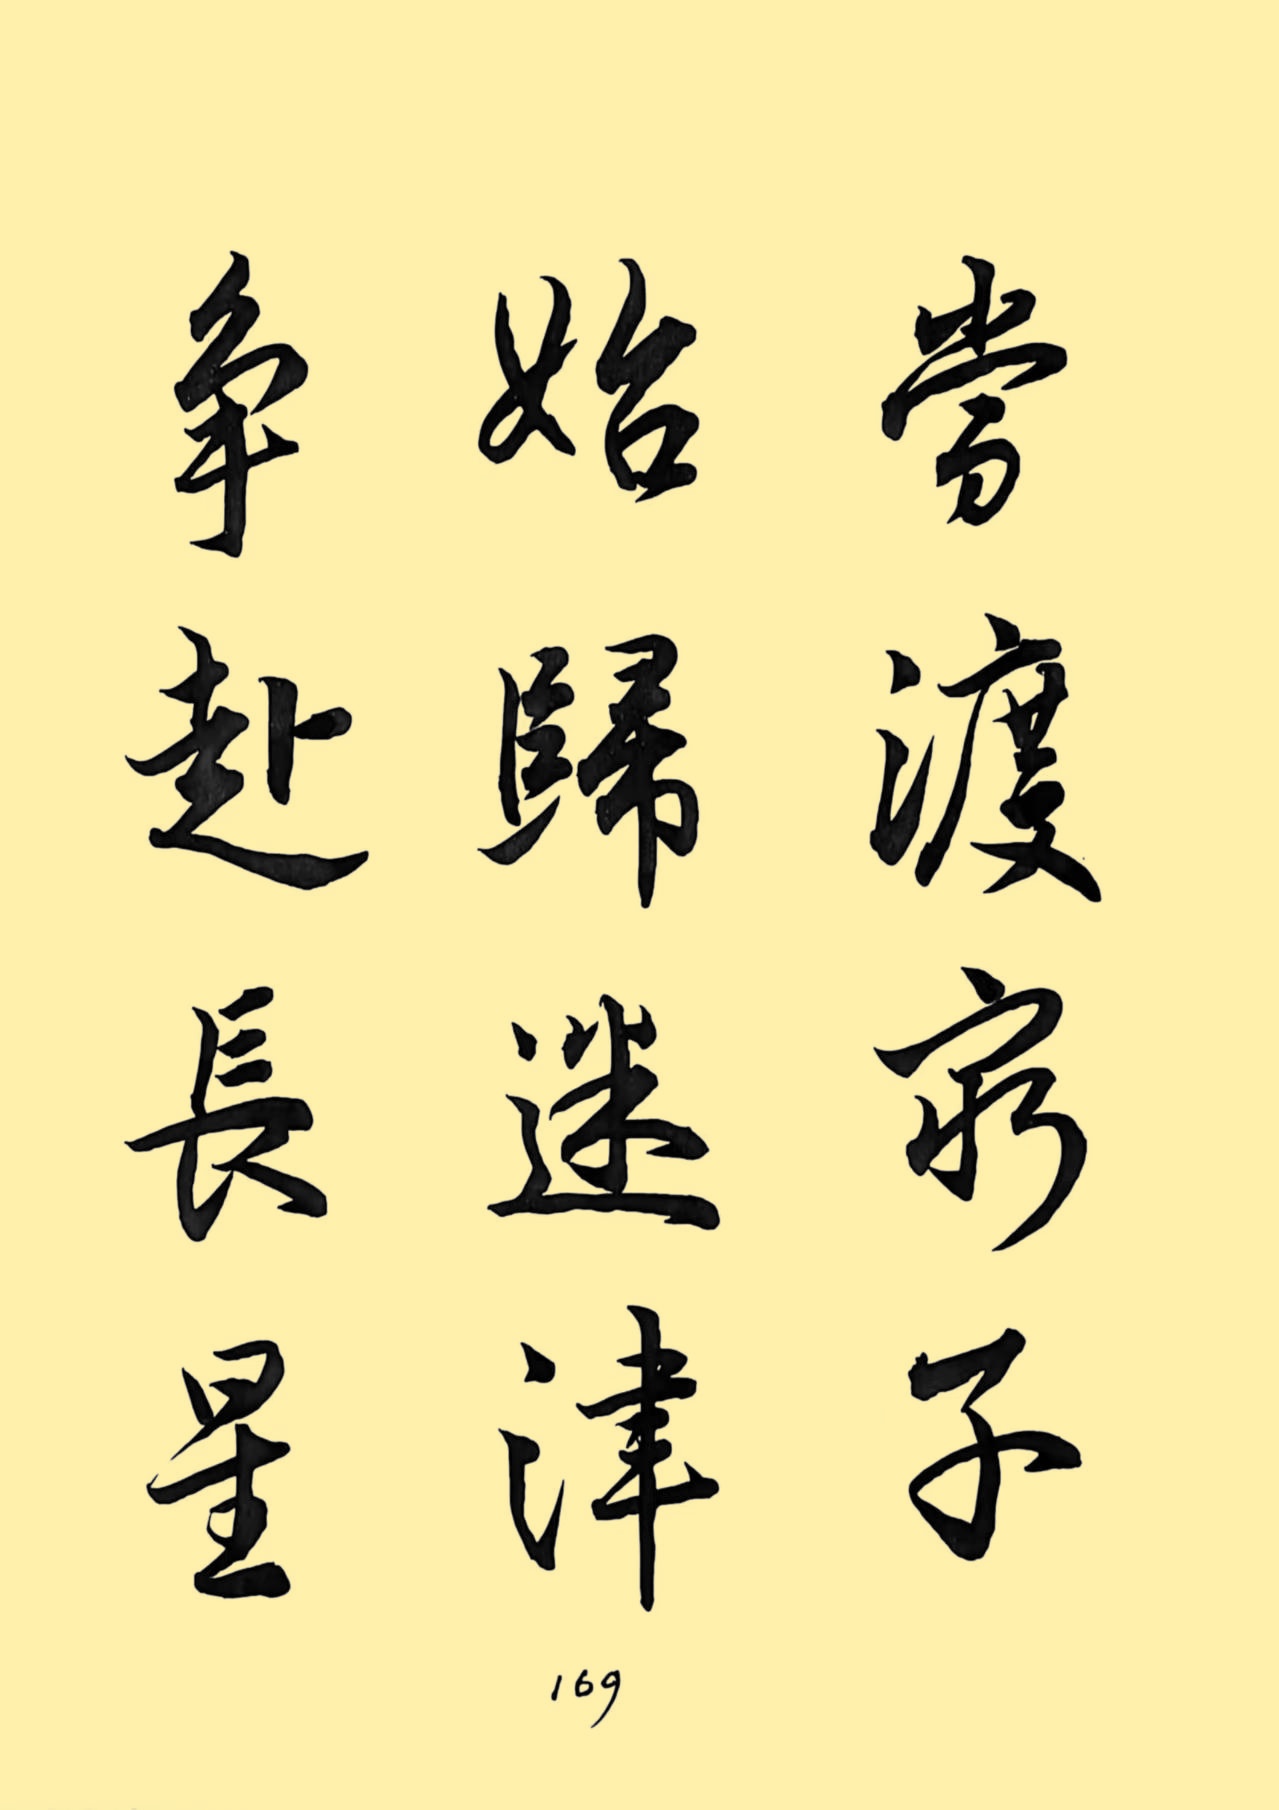 嘗渡窮子
始歸迷津
爭赴長星
169